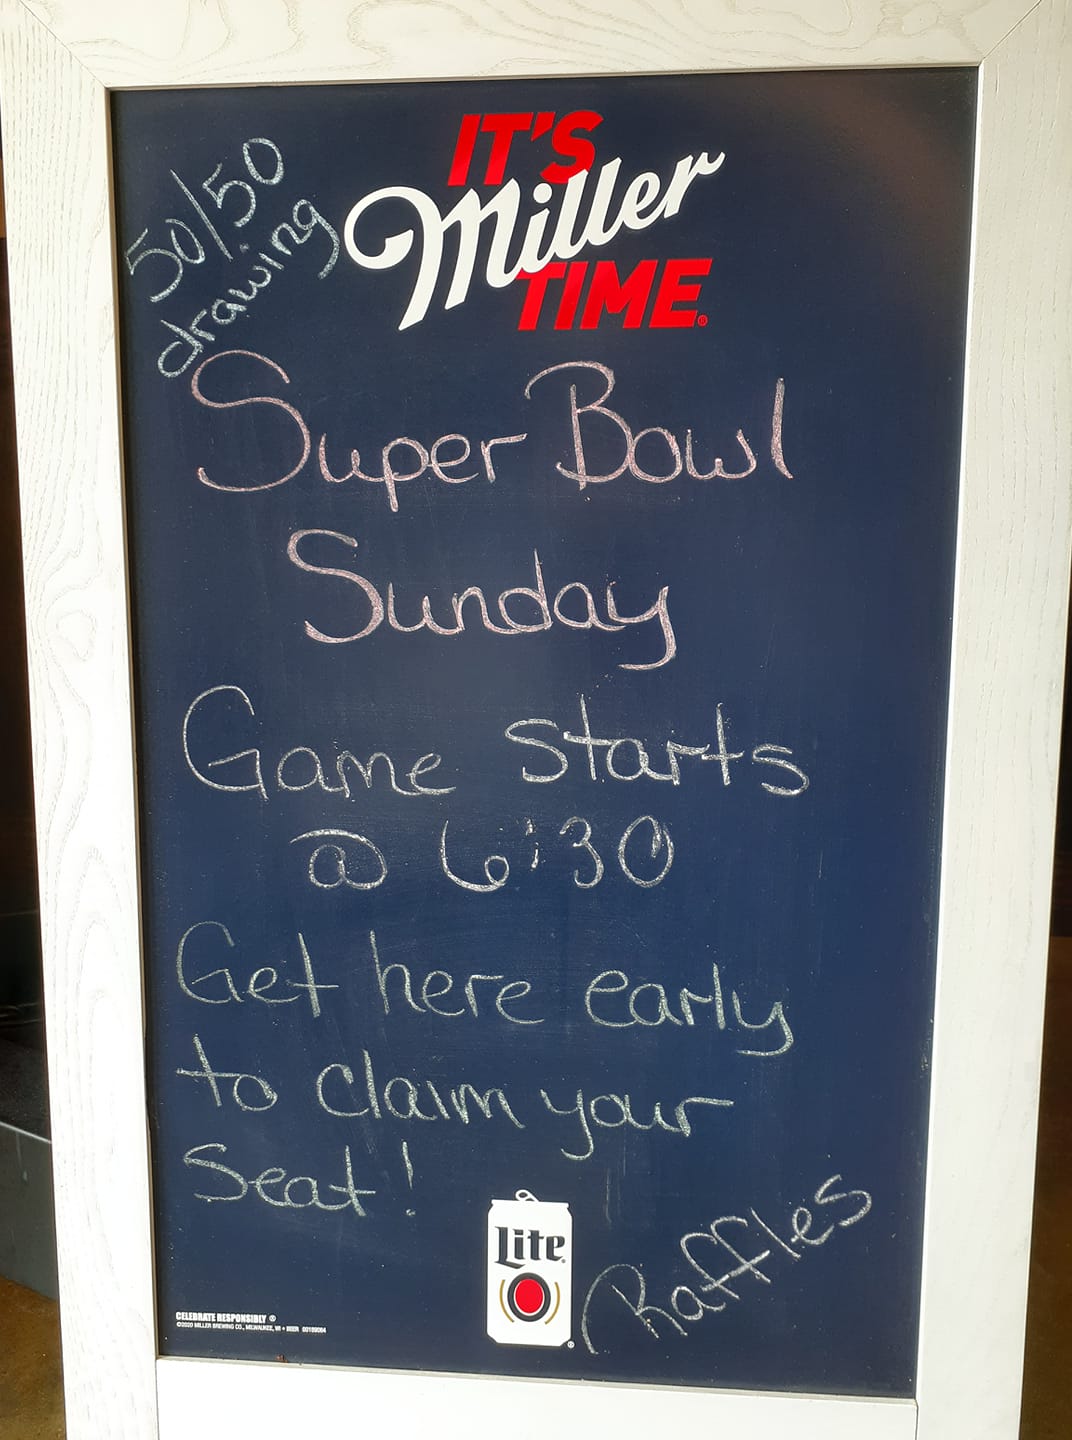 50/50
drawing
IT'S
Miller
TIME®
Super Bowl
Sunday
Game starts
@ 6:30
Get here early
to claim your
Seat!
Lite
Raffles
CELEBRATE RESPONSIBLY ®
©2020 MILLER BREWING CO., MILWAUKEE, WI • BEER